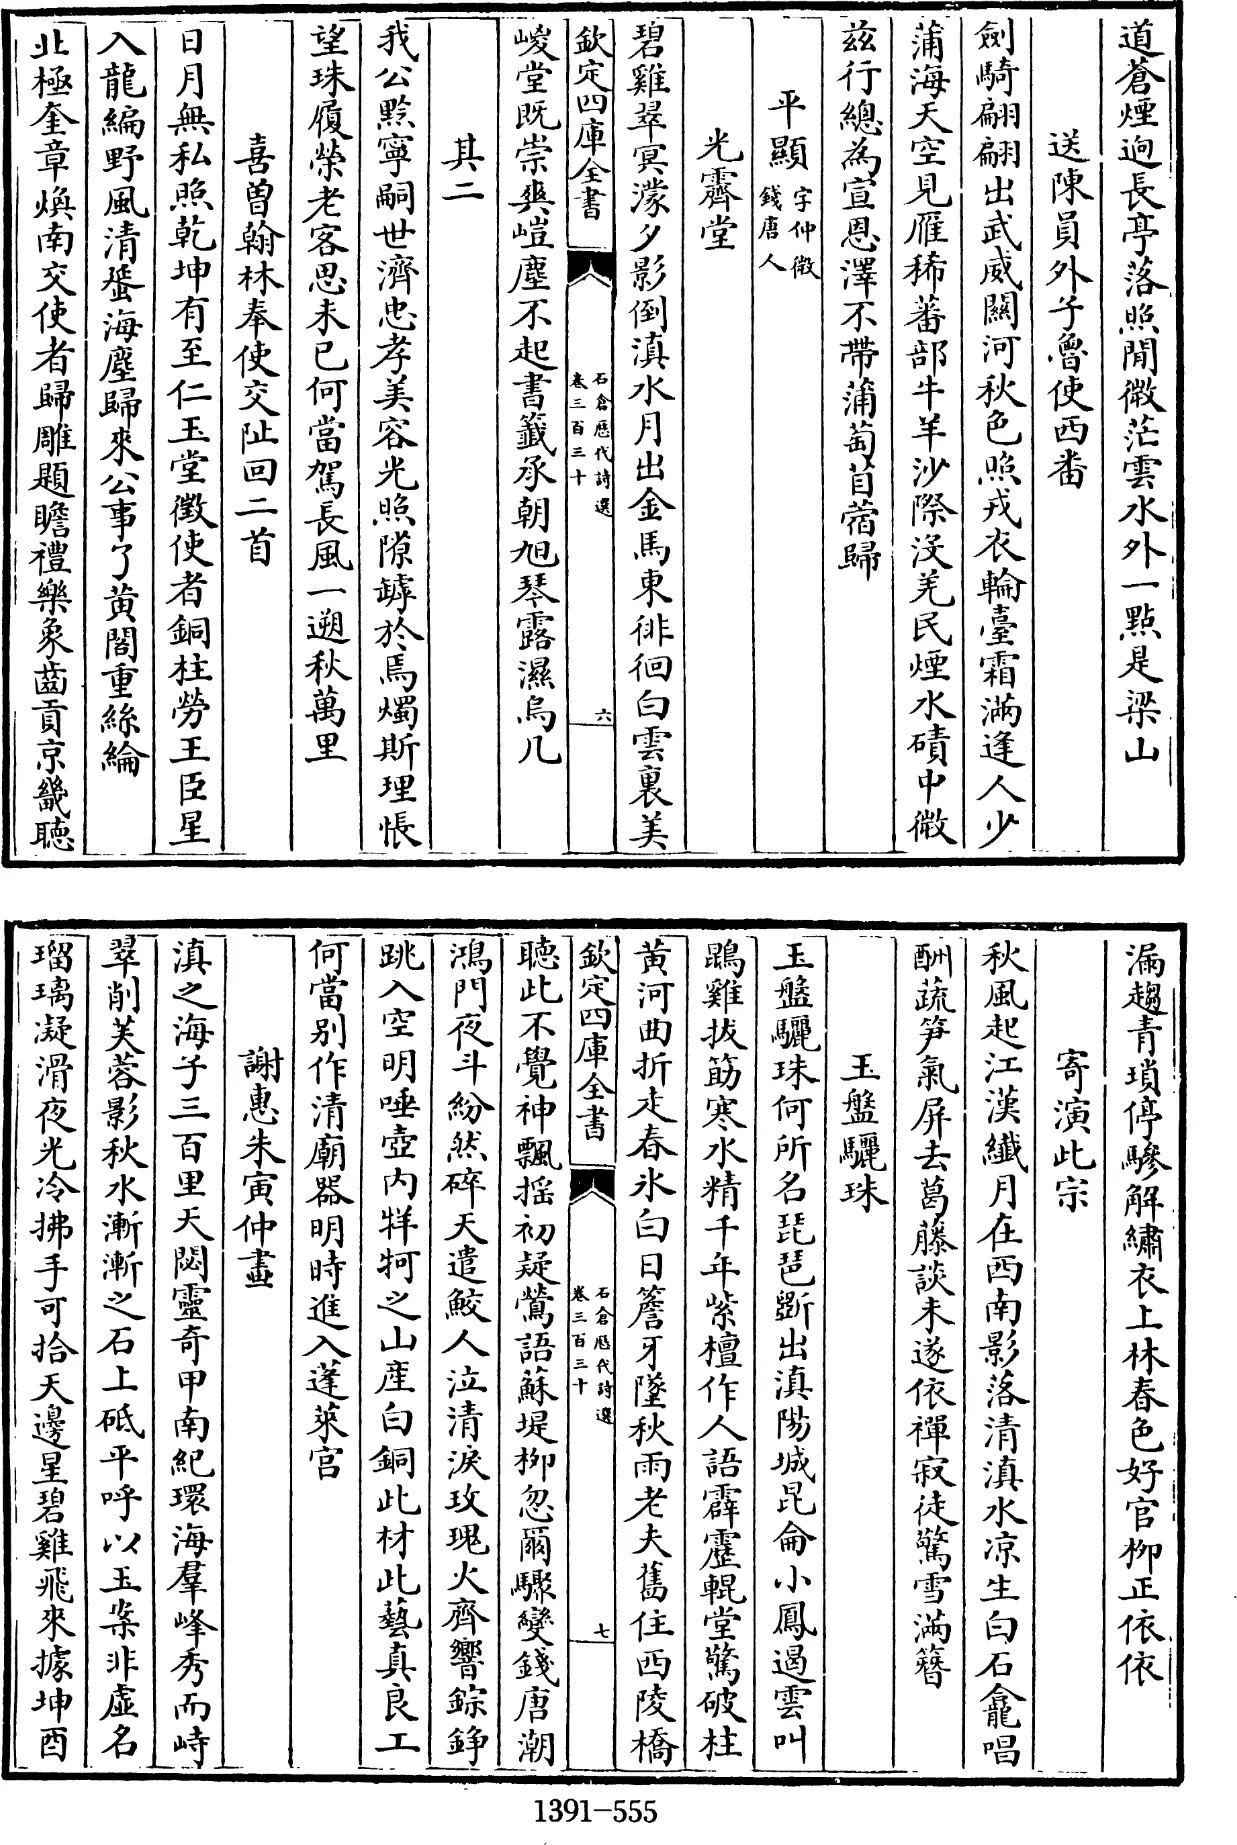 道蒼煙逈長亭落照間微茫雲水外一點是梁山
送陳員外子魯使西番
劍騎翩翩出武威關河秋色照戎衣輪臺霜滿逢人少
蒲海天空見雁稀蕃部牛羊沙際没羌民煙水磧中微
兹行總為宣恩澤不帶蒲萄苜蓿歸
平顯字仲微
錢唐人
光霽堂
碧雞翠冥濛夕影倒滇水月出金馬東徘徊白雲裏美
欽定四庫全書
石倉歴代詩選
卷三百三十
六
崚堂既崇爽塏塵不起書籤承朝旭琴露濕烏几
其二
我公黔寧嗣世濟忠孝美容光照隙罅於焉燭斯理悵
望珠履榮老客思未已何當駕長風一遡秋萬里
喜曽翰林奉使交阯回二首
日月無私照乾坤有至仁玉堂徵使者銅柱勞王臣星
入龍編野風清蜑海塵歸來公事了黄閣重絲綸
北極奎章煥南交使者歸雕題瞻禮樂象齒貢京畿聴
漏趨青瑣停驂解繡衣上林春色好官柳正依依
寄演此宗
秋風起江漢纎月在西南影落清滇水凉生白石龕唱
酬蔬笋氣屏去葛藤談未遂依禪寂徒驚雪滿簪
玉盤驪珠
玉盤驪珠何所名琵琶斵出滇陽城昆侖小鳳遏雲叫
鵾雞拔筋寒水精千年紫檀作人語霹靂輥堂驚破柱
黄河曲折走春氷白日簷牙墜秋雨老夫舊住西陵橋
欽定四庫全書
石倉歴代詩選
卷三百三十
七
聴此不覺神飄揺初疑鶯語蘇堤柳忽爾驟變錢唐潮
鴻門夜斗紛然碎天遣鮫人泣清淚玫瑰火齊響錝錚
跳入空明唾壺内牂牁之山産白銅此材此藝真良工
何當别作清廟器明時進入蓬萊宫
謝惠朱寅仲畫
滇之海子三百里天閟靈奇甲南紀環海羣峰秀而峙
翠削芙蓉影秋水漸漸之石上砥平呼以玉案非虚名
瑠璃凝滑夜光冷拂手可拾天邊星碧雞飛來據坤酉
1391-555